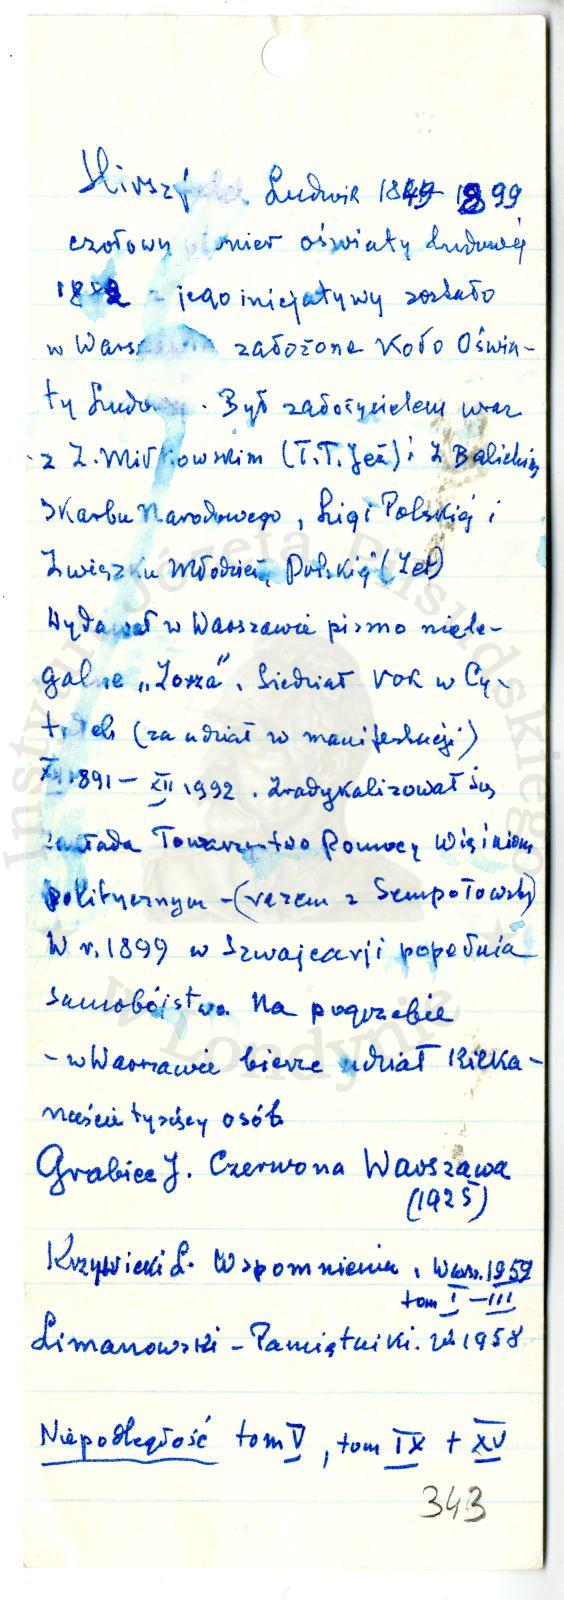 Hirszfeld Ludwik 1849 1899
czołowy pionier oświaty ludowej
1882 z jego inicjatywy zostało
w Warszawie założone Koło Oświa-
ty Ludowej. Był założycielem wraz
z Z. Miłkowskim (T.T. Jeż) i Z Balickim
Skarbu Narodowego, Ligi Polskiej i
Związku Młodzieży Polskiej (Zet)
Wydawał w Warszawie pismo niele-
galne „Zorza”. Siedział rok w Cy-
tadeli (za udział w manifestacji)
1891 – XII 1992. Zradykalizował się
zakłada Towarzystwo Pomocy Więźniom
politycznym – (razem z Sempołowską)
W r. 1899 w Szwajcarji popełnia
samobójstwo. Na pogrzebie
– w Warszawie bierze udział kilka-
naście tysięcy osób
Grabiec J. Czerwona Warszawa
(1925)
Krzywicki L. Wspomnienia, Warsz. 1959
tom I – III
Limanowski – Pamiętniki. 1958
Niepodległość tom V, tom IX + XV
343
Instytut Józefa Piłsudskiego
w Londynie